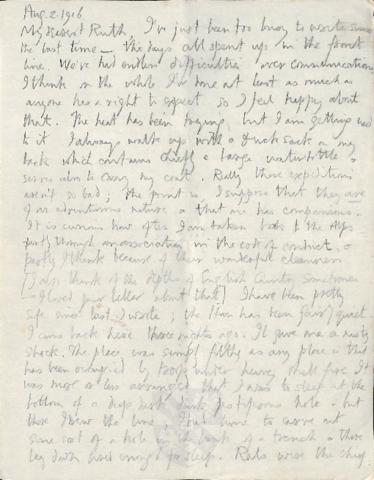 Aug. 2. 1916
My dearest Ruth, I've just been too busy to write since
the last time — the days all spent up in the front
line. We've had endless difficulties over communications
I think on the whole I've done at least as much as
anyone has a right to expect so I feel happy about
that. The heat has been trying, but I am getting used
to it. I always walk up with a ruck sack on my
back which contains chiefly a large waterbottle &
serves also to carry my coat. Really these expeditions
aren't so bad; the point is I suppose that they are
of an adventurous nature & that one has companions.
It is curious how often I am taken back to the Alps
partly through an association in the code of conduct, &
partly I think because of their wonderful cleanness
[I also think of the depths of English Country sometimes
— I loved your letter about that] I have been pretty
safe since last I wrote; the Hun has been fairly quiet
I came back here three nights ago. It gave me a nasty
shock. The place was simply filthy as any place is that
has been occupied by troops under heavy shell fire. It
was more or less arranged that I was to sleep at the
bottom of a deep dark hole but
there I drew the line, to carve out
some sort of a hole in the bank of a trench & there
lay down to sleep. Rats were the chief